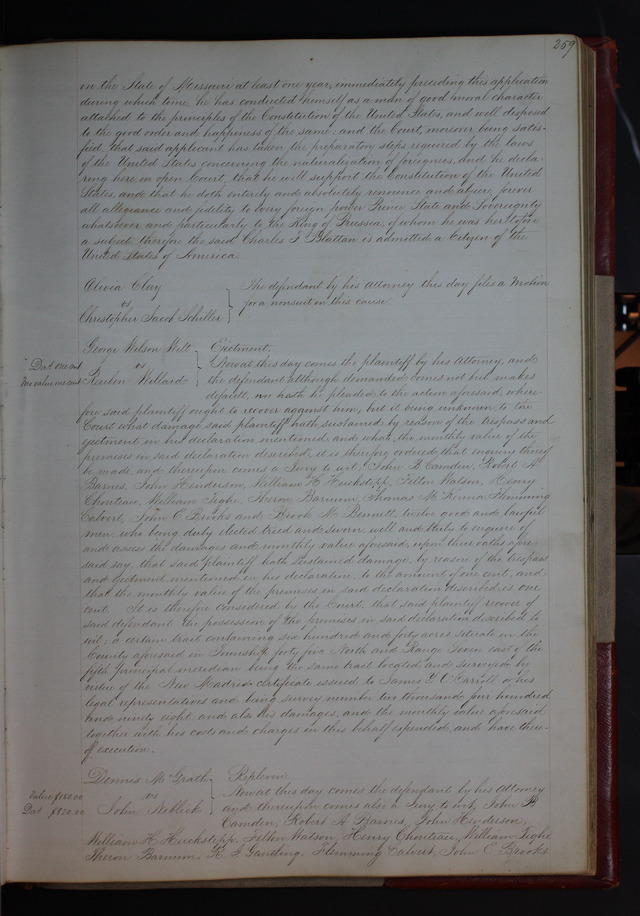 259
in the State of Missouri at least one year, immediately preceding this application
during which time, he has conducted himself as a man of good moral character
attached to the principles of the Constitution of the United States, and well disposed
to the good order and happiness of the same; and the Court, moreover being satis-
fied, that said applicant has taken the preparatory steps required by the laws
of the United States concerning the naturalization of foreigners, and he decla-
ring here in open Court, that he will support the Constitution of the United
States, and that he doth entirely and absolutely renounce and abjure forever
all allegiance and fidelity to every foreign power Prince State and Sovereignty
whatsoever and particularly to the King of Prussia, of whom he was heretofore
a subject therefore the said Charles F Blattau is admitted a Citizen of the
United States of America.
Olivia Clay
vs
Christopher Jacob Schiller
The defendant by his Attorney this day files a Motion
for a nonsuit in this cause
George Wilson Wilt
vs
Reuben Willard
Dat. one cent
Mo value one cent
Ejectment.
Now at this day comes the plaintiff by his Attorney, and
the defendant although demanded comes not but makes
default, nor hath he pleaded to the action aforesaid, where-
fore said plaintiff ought to recover against him, but it being unknown to the
Court what damage said plaintiff hath sustained by reason of the trespass and
ejectment in his declaration mentioned, and what the monthly value of the
premises in said declaration described, it is therefore ordered that enquiry thereof
be made, and thereupon comes a Jury to wit, John B Camden, Robert A
Barnes, John Henderson, William H Huckstepp, Felton Watson, Henry
Chouteau, William Tighe, Theron Barnum, Thomas M Flemming
Calvert, John C Brooks and M. Bennett, twelve good and lawful
men, who being duly elected tried and sworn well and truly to enquire of
and assess the damages and monthly value aforesaid, upon their oaths afore-
said say, that said plaintiff hath sustained damage by reason of the trespass
and ejectment mentioned in his declaration, to the amount of one cent, and
that the monthly value of the premises in said declaration described is one
cent. It is therefore considered by the Court, that said plaintiff recover of
said defendant the possession of the premises in said declaration described to
wit: a certain tract containing six hundred and forty acres situate in the
County aforesaid in Township forty five North and Range Seven east of the
fifth principal meridian being the same tract located and surveyed by
virtue of the New Madrid certificate issued to James Y O'Carroll or his
legal representatives and being survey number two thousand four hundred
and ninety eight and also his damages, and the monthly value aforesaid
together with his costs and charges in this behalf expended, and have there-
of execution.
Dennis McGrath
vs
John Nebleck
Value $150.00
Dat $520.00
Replevin
Now at this day comes the defendant by his Attorney
and thereupon comes also a Jury to wit, John B
Camden, Robert A Barnes, John Henderson,
William H Huckstepp, Felton Watson, Henry Chouteau, William Tighe
Theron Barnum, Flemming Calvert, John C Brooks